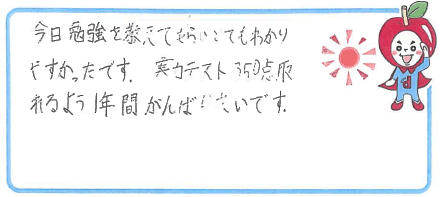 今日勉強を教えてもらいとてもわかり
やすかったです。実力テスト350点取
れるよう1年間がんばりたいです。